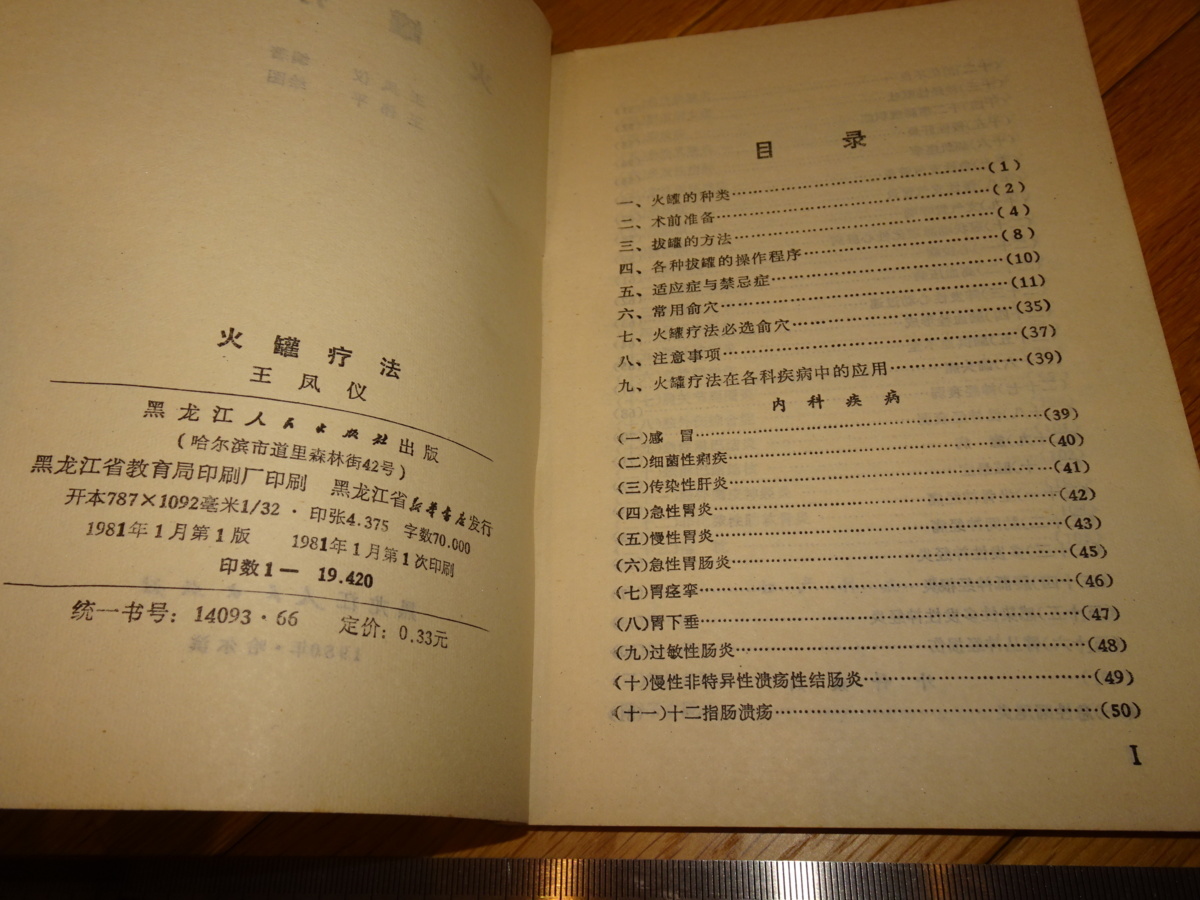 火罐疗法
王凤仪
黑龙江人民出版社出版
(哈尔滨市道里森林街42号)
黑龙江省教育局印刷厂印刷 黑龙江省新华书店发行
开本787×1092毫米1/32·印张4.375 字数70.000
1981年1月第1版 1981年1月第1次印刷
印数1—19.420
统一书号：14093·66 定价：0.33元
目录
一、火罐的种类……(1)
二、术前准备……(2)
三、拔罐的方法……(4)
四、各种拔罐的操作程序……(8)
五、适应症与禁忌症……(10)
六、常用俞穴……(11)
七、火罐疗法必选俞穴……(35)
八、注意事项……(37)
九、火罐疗法在各科疾病中的应用……(39)
内科疾病
(一)感冒……(39)
(二)细菌性痢疾……(40)
(三)传染性肝炎……(41)
(四)急性胃炎……(42)
(五)慢性胃炎……(43)
(六)急性胃肠炎……(45)
(七)胃痉挛……(46)
(八)胃下垂……(47)
(九)过敏性肠炎……(48)
(十)慢性非特异性溃疡性结肠炎……(49)
(十一)十二指肠溃疡……(50)
I